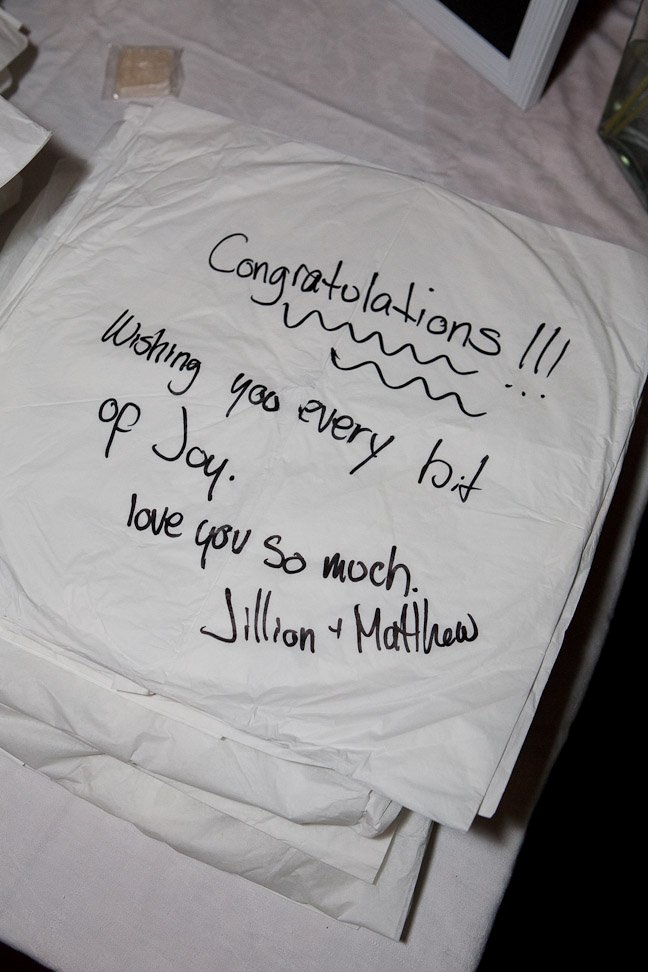 Congratulations !!!
...
Wishing you every bit
of Joy.
love you so much.
Jillian + Matthew